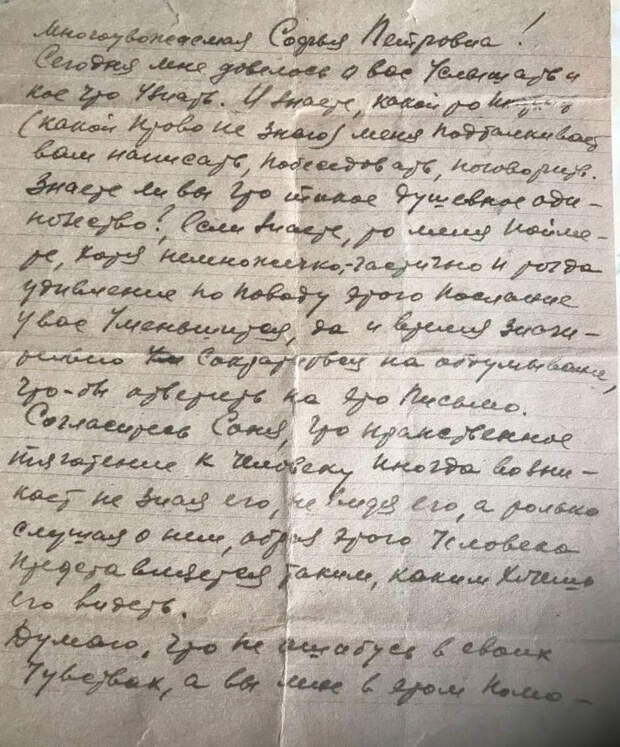 Многоуважаемая Софья Петровна!
Сегодня мне довелось о вас услышать и
кое что узнать. И знаете, какой то
(какой право не знаю) меня подталкивает
вам написать, побеседовать, поговорить.
Знаете ли вы что такое душевное оди-
ночество? Если знаете, то меня пойме-
те, хотя немножечко, частично и тогда
удивление по поводу этого послания
у вас уменьшится, да и время значи-
тельно сократиться на обдумывание,
что-бы ответить на это письмо.
Согласитесь Соня, что нравственное
тяготение к человеку иногда возни-
кает не зная его, не видя его, а только
слушая о нем, образ этого человека
представляется таким, каким хочешь
его видеть.
Думаю, что не ошибусь в своих
чувствах, а вы мне в этом помо-